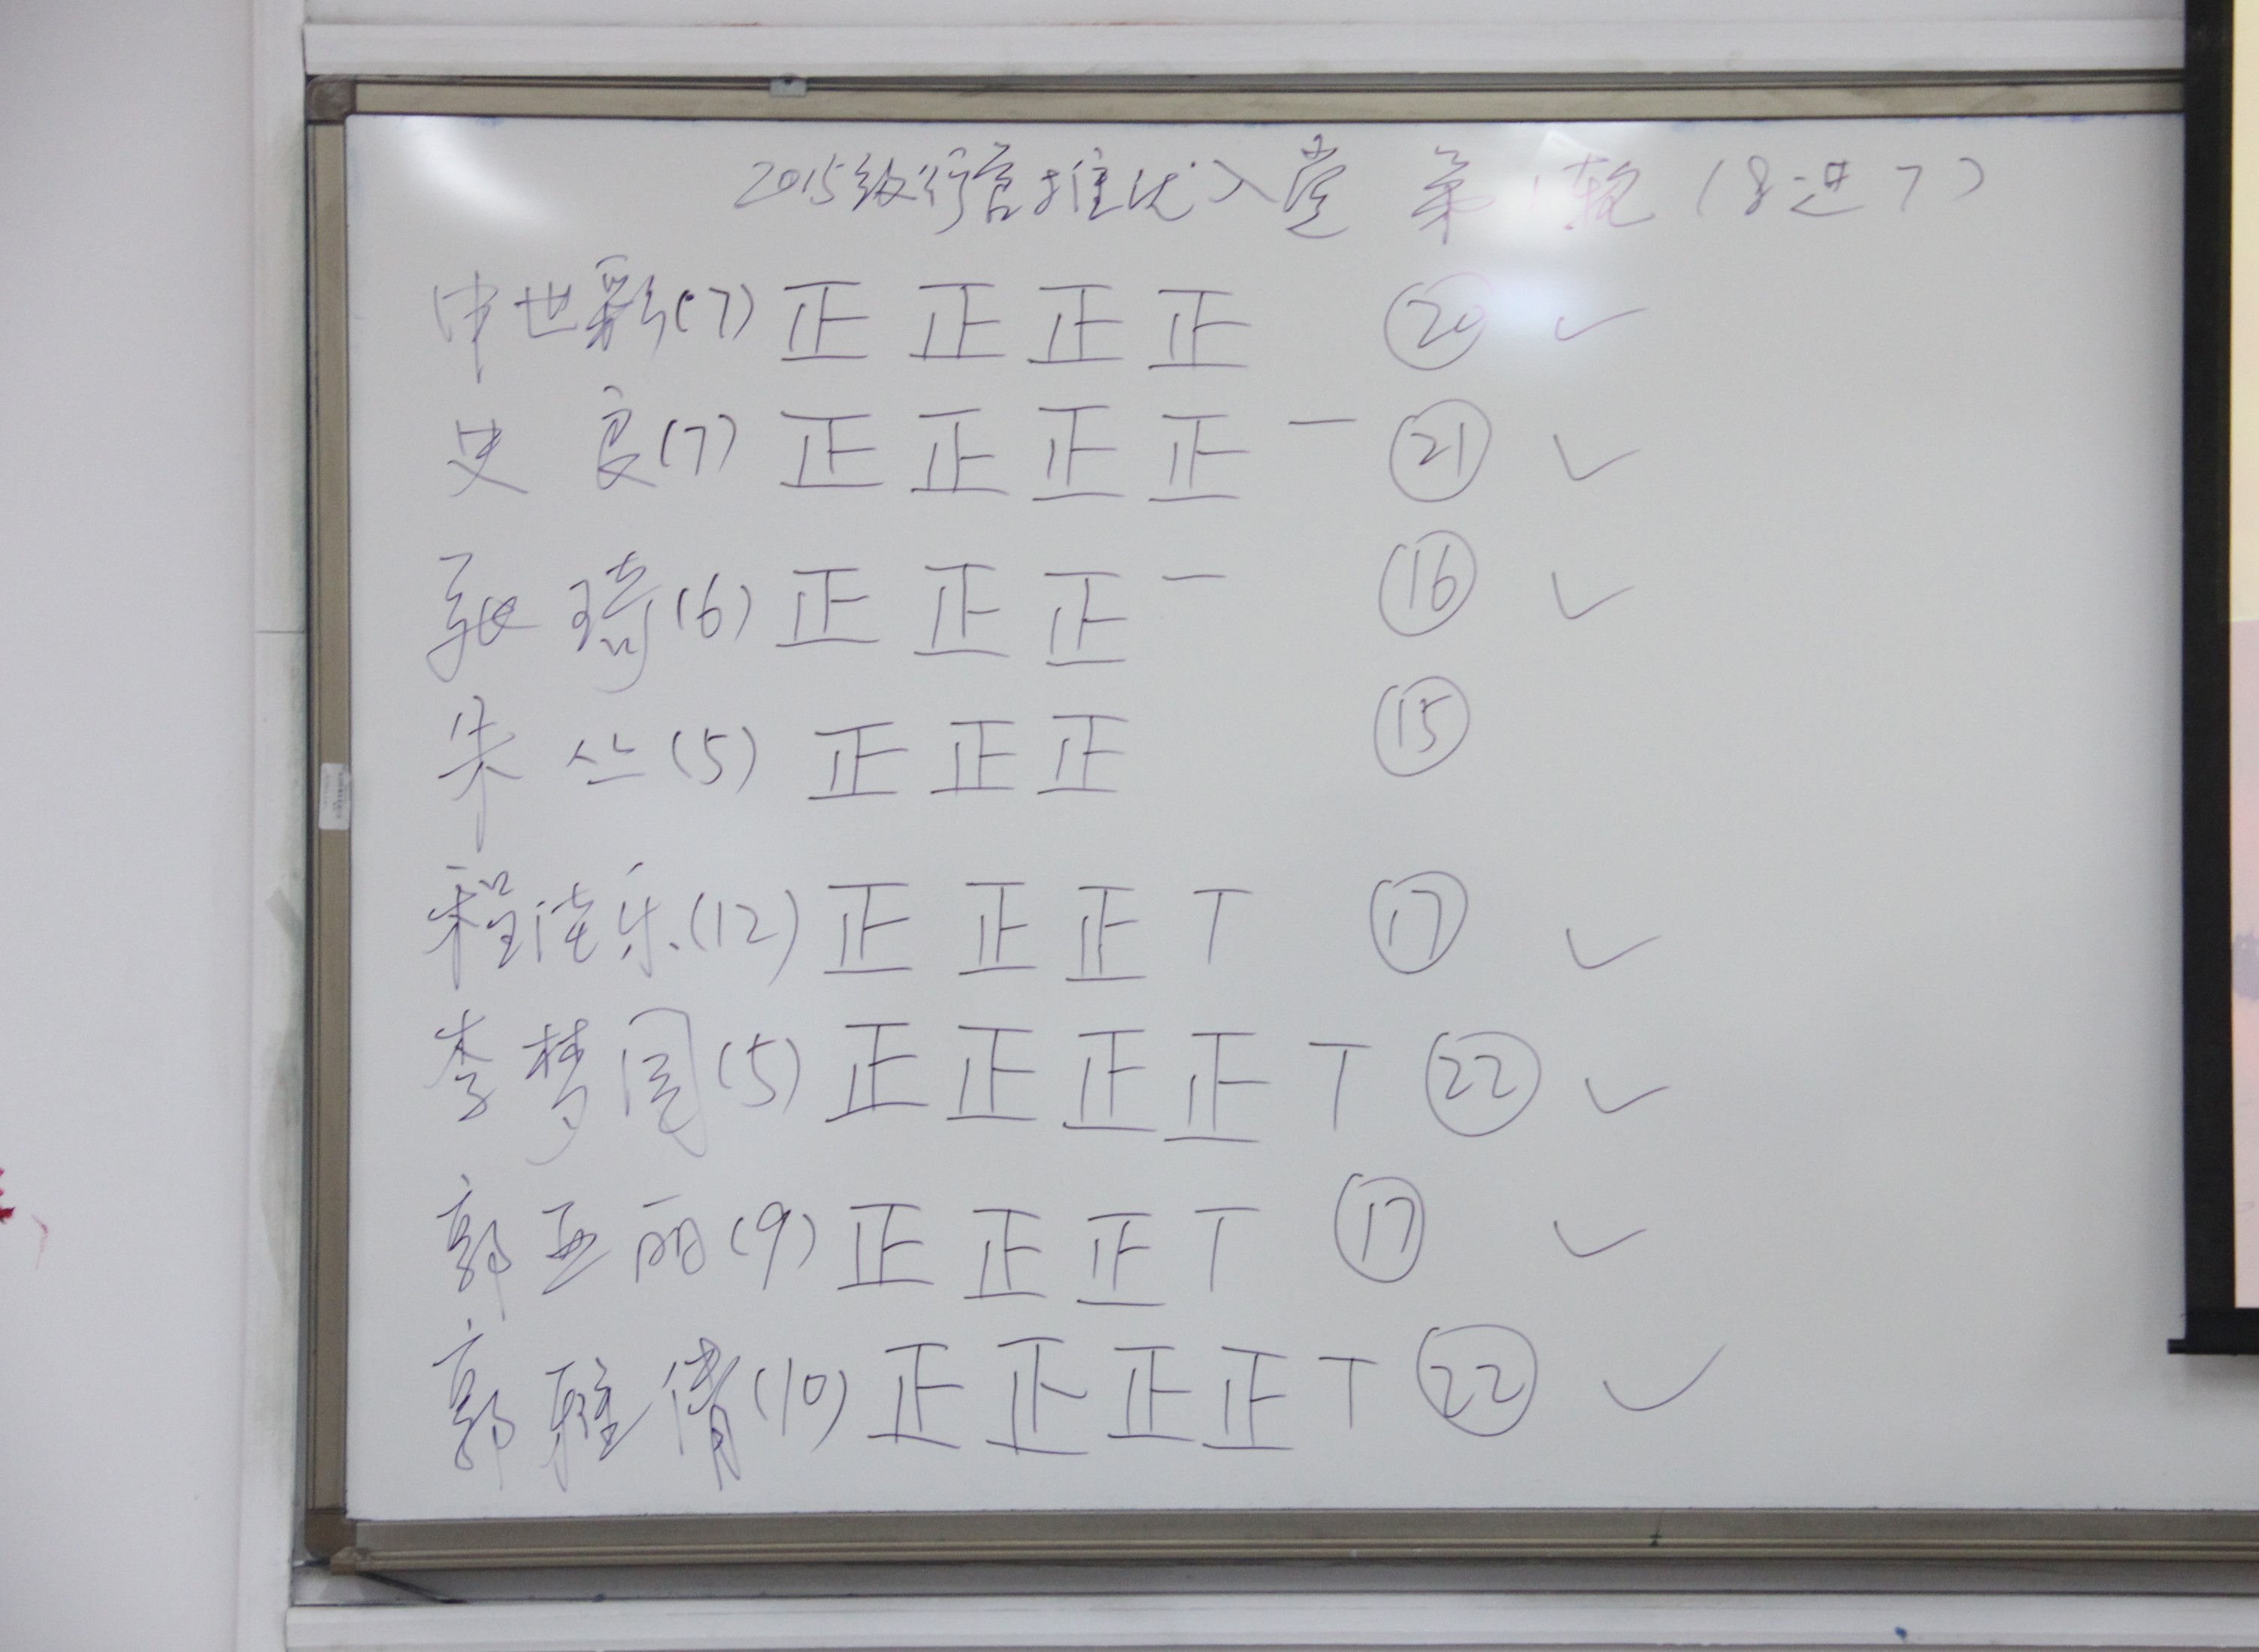 2015级行管推优入党 第1轮 (8进7)
申世彩(7) 正 正 正 正 ⑳ ✓
史良(7) 正 正 正 正 一 ㉑ ✓
张琦(6) 正 正 正 一 ⑯ ✓
朱丛(5) 正 正 正 ⑮
程佳乐(12) 正 正 正 T ⑰ ✓
李梦圆(5) 正 正 正 正 T ㉒ ✓
郭亚丽(9) 正 正 正 T ⑰ ✓
郭雅倩(10) 正 正 正 正 T ㉒ ✓